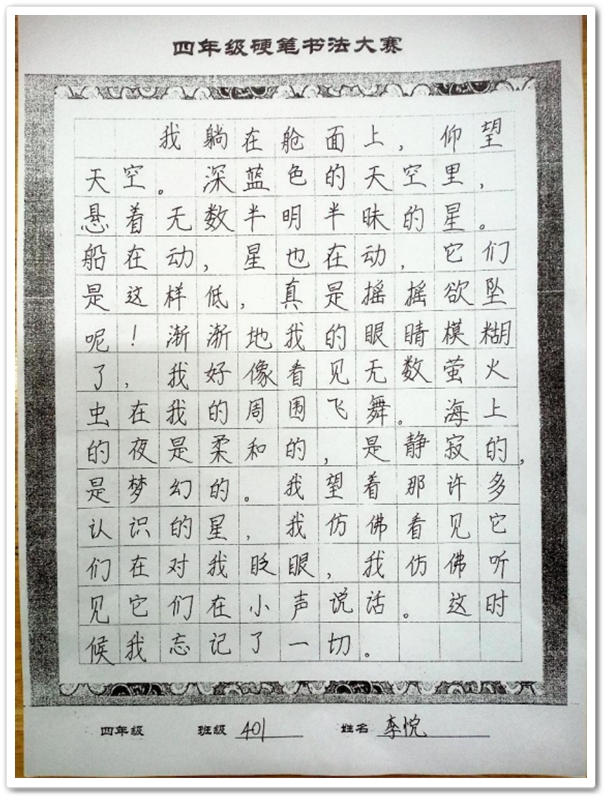 四年级硬笔书法大赛
我躺在舱面上，仰望
天空。深蓝色的天空里，
悬着无数半明半昧的星。
船在动，星也在动，它们
是这样低，真是摇摇欲坠
呢！渐渐地我的眼睛模糊
了，我好像看见无数萤火
虫在我的周围飞舞。海上
的夜是柔和的，是静寂的，
是梦幻的。我望着那许多
认识的星，我仿佛看见它
们在对我眨眼，我仿佛听
见它们在小声说话。这时
候我忘记了一切。
四年级 班级 401 姓名 李悦